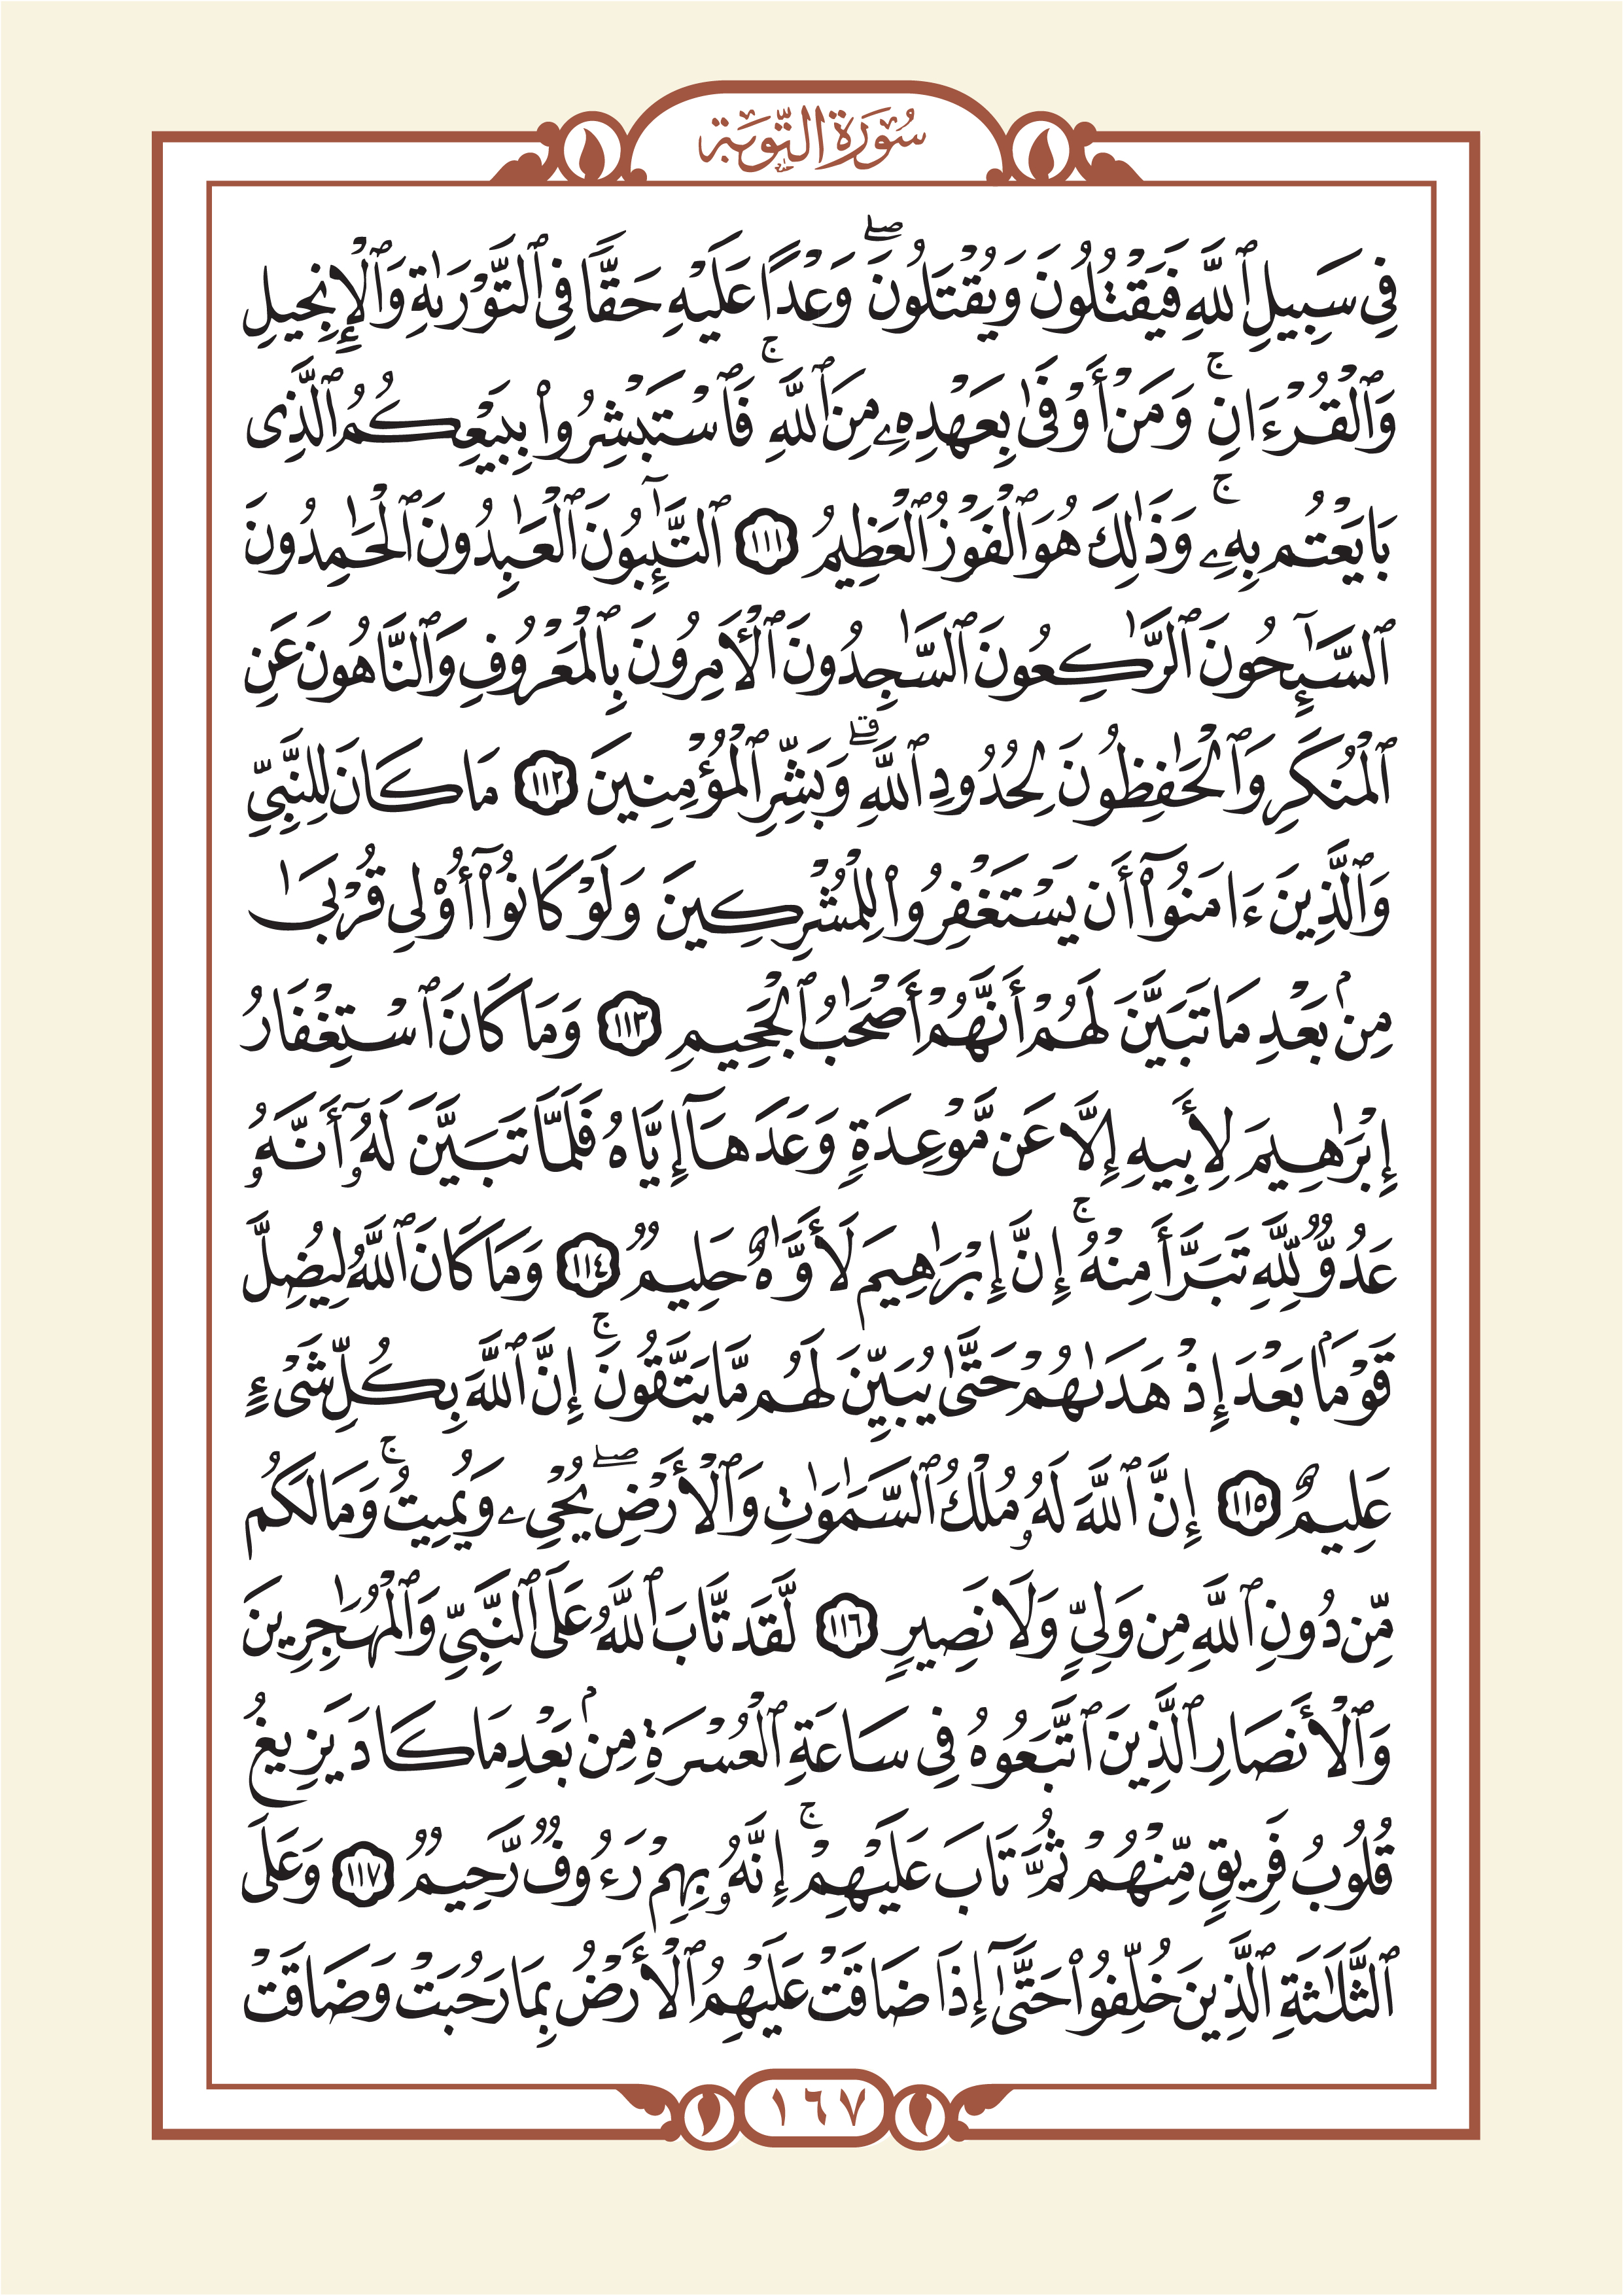 سُورَةُ التَّوبَة
فِى سَبِيلِ ٱللَّهِ فَيَقْتُلُونَ وَيُقْتَلُونَۖ وَعْدًا عَلَيْهِ حَقًّا فِى ٱلتَّوْرَىٰةِ وَٱلْإِنجِيلِ
وَٱلْقُرْءَانِۚ وَمَنْ أَوْفَىٰ بِعَهْدِهِۦ مِنَ ٱللَّهِۚ فَٱسْتَبْشِرُوا۟ بِبَيْعِكُمُ ٱلَّذِى
بَايَعْتُم بِهِۦۚ وَذَٰلِكَ هُوَ ٱلْفَوْزُ ٱلْعَظِيمُ ١١١ ٱلتَّٰٓئِبُونَ ٱلْعَٰبِدُونَ ٱلْحَٰمِدُونَ
ٱلسَّٰٓئِحُونَ ٱلرَّٰكِعُونَ ٱلسَّٰجِدُونَ ٱلْأَمِرُونَ بِٱلْمَعْرُوفِ وَٱلنَّاهُونَ عَنِ
ٱلْمُنكَرِ وَٱلْحَٰفِظُونَ لِحُدُودِ ٱللَّهِۗ وَبَشِّرِ ٱلْمُؤْمِنِينَ ١١٢ مَا كَانَ لِلنَّبِىِّ
وَٱلَّذِينَ ءَامَنُوٓا۟ أَن يَسْتَغْفِرُوا۟ لِلْمُشْرِكِينَ وَلَوْ كَانُوٓا۟ أُو۟لِى قُرْبَىٰ
مِنۢ بَعْدِ مَا تَبَيَّنَ لَهُمْ أَنَّهُمْ أَصْحَٰبُ ٱلْجَحِيمِ ١١٣ وَمَا كَانَ ٱسْتِغْفَارُ
إِبْرَٰهِيمَ لِأَبِيهِ إِلَّا عَن مَّوْعِدَةٍ وَعَدَهَآ إِيَّاهُ فَلَمَّا تَبَيَّنَ لَهُۥٓ أَنَّهُۥ
عَدُوٌّ لِّلَّهِ تَبَرَّأَ مِنْهُۚ إِنَّ إِبْرَٰهِيمَ لَأَوَّٰهٌ حَلِيمٌ ١١٤ وَمَا كَانَ ٱللَّهُ لِيُضِلَّ
قَوْمًۢا بَعْدَ إِذْ هَدَىٰهُمْ حَتَّىٰ يُبَيِّنَ لَهُم مَّا يَتَّقُونَۚ إِنَّ ٱللَّهَ بِكُلِّ شَىْءٍ
عَلِيمٌ ١١٥ إِنَّ ٱللَّهَ لَهُۥ مُلْكُ ٱلسَّمَٰوَٰتِ وَٱلْأَرْضِۖ يُحْىِۦ وَيُمِيتُۚ وَمَا لَكُم
مِّن دُونِ ٱللَّهِ مِن وَلِىٍّ وَلَا نَصِيرٍ ١١٦ لَّقَد تَّابَ ٱللَّهُ عَلَى ٱلنَّبِىِّ وَٱلْمُهَٰجِرِينَ
وَٱلْأَنصَارِ ٱلَّذِينَ ٱتَّبَعُوهُ فِى سَاعَةِ ٱلْعُسْرَةِ مِنۢ بَعْدِ مَا كَادَ يَزِيغُ
قُلُوبُ فَرِيقٍ مِّنْهُمْ ثُمَّ تَابَ عَلَيْهِمْۚ إِنَّهُۥ بِهِمْ رَءُوفٌ رَّحِيمٌ ١١٧ وَعَلَى
ٱلثَّلَٰثَةِ ٱلَّذِينَ خُلِّفُوا۟ حَتَّىٰٓ إِذَا ضَاقَتْ عَلَيْهِمُ ٱلْأَرْضُ بِمَا رَحُبَتْ وَضَاقَتْ
١٦٧